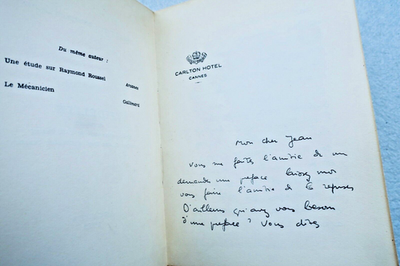 Du même auteur :
Une étude sur Raymond Roussel
Arcanes
Le Mécanicien
Gallimard
CARLTON HOTEL
CANNES
Mon cher Jean
vous me faites l'amitié de me
demander une préface laissez moi
vous faire l'amitié de la refuser
D'ailleurs qu'avez vous besoin
d'une préface ? Vous dites